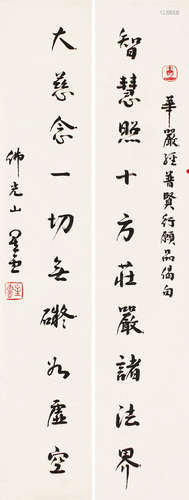 華嚴經普賢行願品偈句
智慧照十方莊嚴諸法界
大慈念一切無礙如虛空
佛光山星雲